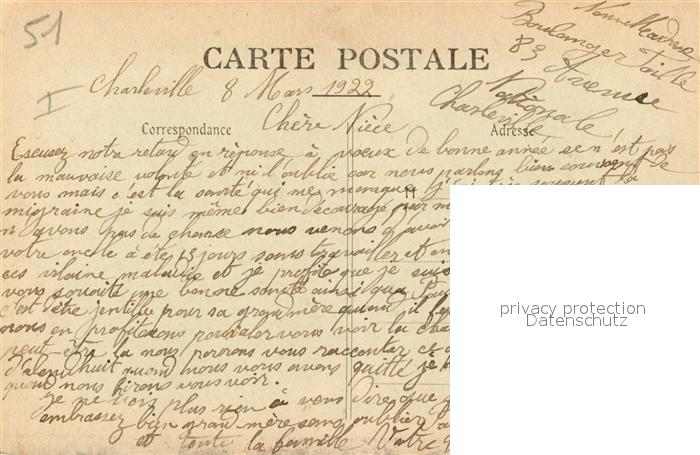 51
I
CARTE POSTALE
Yvonne
Boulanger Taille
83 Avenue
Nationale
Charleville
Charleville 8 Mars 1922
Correspondance
Adresse
Chère Nièce
Escusez notre retard en réponse à voeux de bonne année se n'est pas
la mauvaise volonté et ni l'oublie car nous parlons bien souvent de
vous mais c'est la santé qui me manque j'ai souvent la
migraine je suis même bien découragé
n avons pas de chance nous venons d'avoir
votre oncle à été 15 jours sans travailler et
ces vilaine maladie et je profite que je suis
vous souhaite une bonne santé ainsi que
c'est être gentille pour sa grand mère quand il
nous en profiterons pour aler vous voir la
peut-être la nous pourrons vous raconter
d'aujourd'huit quand nous vous avons quitté je
quand nous hirons vous voir.
Je ne voix plus rien à vous dire que
embrassez bien grand mère sans oublier
et toute la famille Votre
privacy protection
Datenschutz